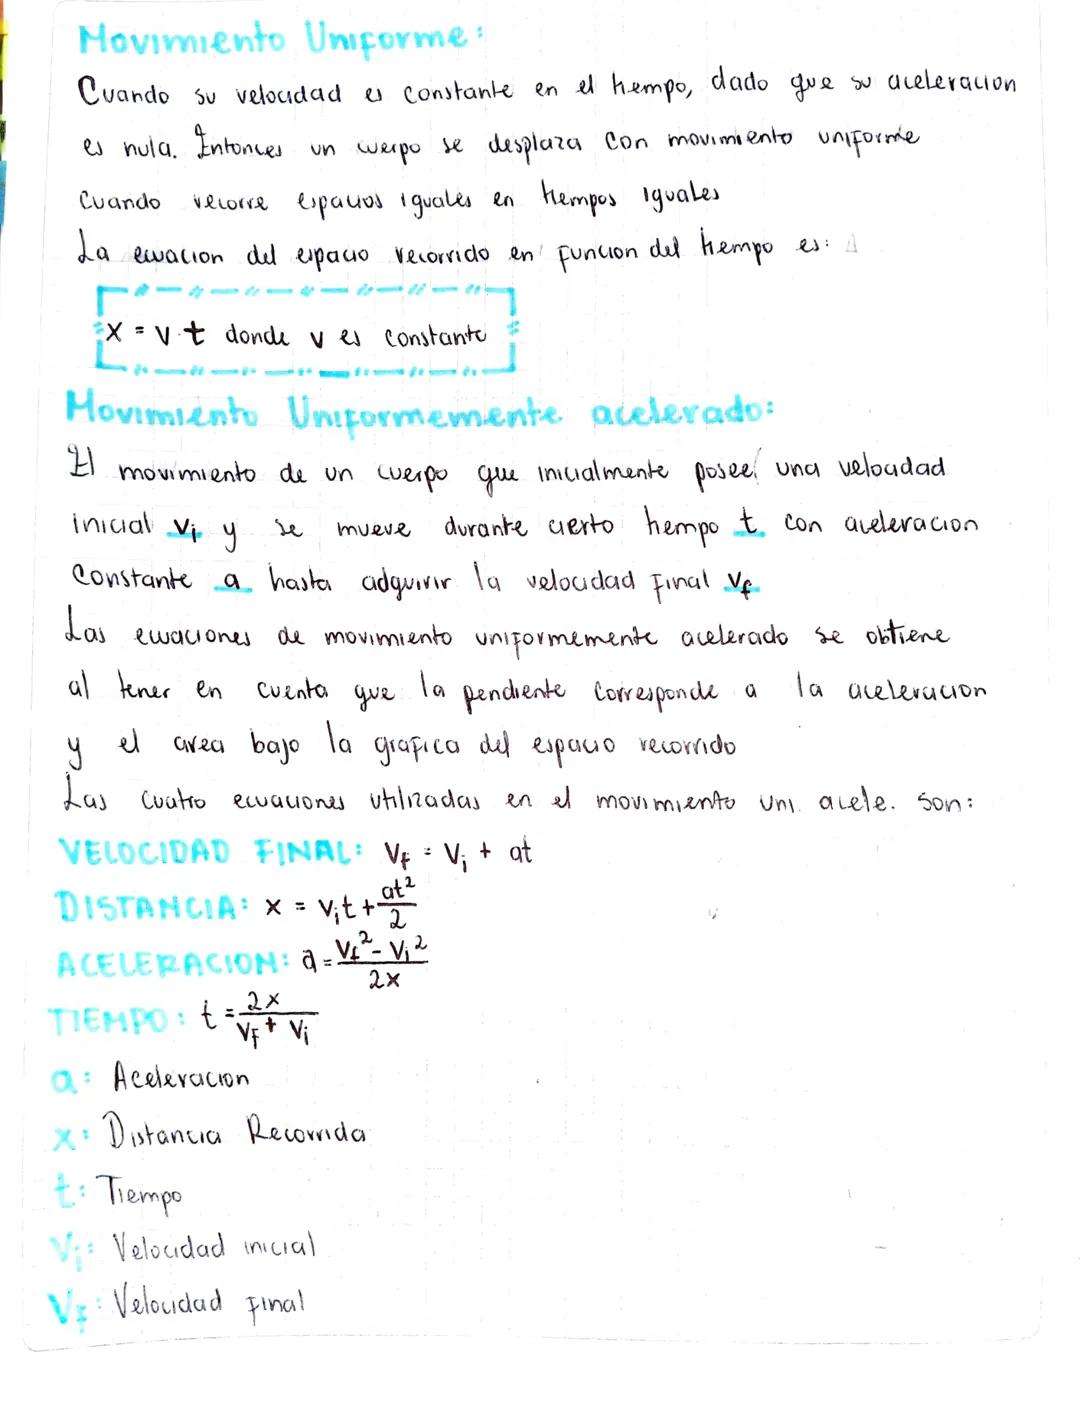 Movimiento Uniforme:
Cuando su velocidad es constante en el tiempo, dado que su aceleracion
es nula. Entonces un cuerpo se desplaza con movimiento uniforme
cuando recorre espacios iguales en tiempos iguales
La ecuacion del espacio recorrido en funcion del tiempo es:
x = v·t donde v es constante
Movimiento Uniformemente acelerado:
El movimiento de un cuerpo que inicialmente posee una velocidad
inicial Vi y se mueve durante cierto tiempo t con aceleracion
constante a hasta adquirir la velocidad final Vf
Las ecuaciones de movimiento uniformemente acelerado se obtiene
al tener en cuenta que la pendiente corresponde a la aceleracion
y el area bajo la grafica del espacio recorrido
Las cuatro ecuaciones utilizadas en el movimiento uni. acele. son:
VELOCIDAD FINAL: Vf = Vi + at
DISTANCIA: x = Vit + at²/2
ACELERACION: a = Vf² - Vi²/2x
TIEMPO: t = 2x/Vf + Vi
a: Aceleracion
x: Distancia Recorrida
t: Tiempo
Vi: Velocidad inicial
Vf: Velocidad final